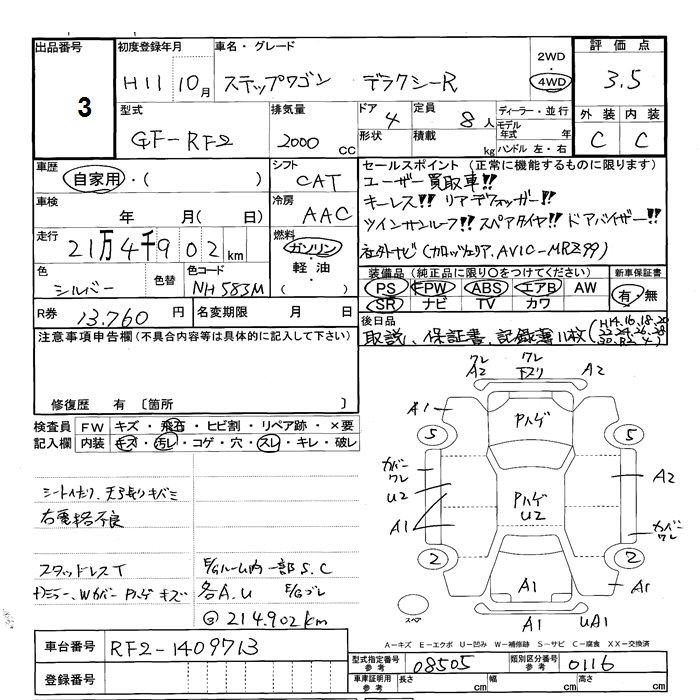 出品番号 初度登録年月 車名・グレード 2WD・4WD 評価点
3 H11 10月 ステップワゴン デラクシーR 3.5
型式 排気量 ドア 定員 ディーラー・並行 外装 内装
GF-RF2 2000 CC 4 8人 モデル年式 年 C C
形状 積載 kg ハンドル 左・右
車歴 シフト セールスポイント(正常に機能するものに限ります)
自家用・( ) CAT ユーザー買取車!!
車検 冷房 キーレス!! リアデフォッガー!!
年 月( 日) AAC ツインサンルーフ!! スペアタイヤ!! ドアバイザー!!
走行 燃料 社外ナビ(カロッツェリア, AVIC-MRZ99)
21万4千902km ガソリン・軽油・( )
色 色替 色コード 装備品(純正品に限り○をつけてください) 新車保証書
シルバー NH583M PS PW ABS エアB AW 有・無
SR ナビ TV カワ
R券 13.760円 名変期限 月 日 後日品
取説、保証書、記録簿11枚(H14.16.18.20
22.24.26.28
30.R2.4)
注意事項申告欄(不具合内容等は具体的に記入して下さい)
修復歴 有 [箇所 ]
検査員 FW キズ・飛石・ヒビ割・リペア跡・×要
記入欄 内装 キズ・汚レ・コゲ・穴・スレ・キレ・破レ
右電格不良
スタッドレスT E/Gルーム内一部S.C
Pハゲ キズ 各A.U
Ⓖ 214.902km
ワレ A2 ワレ A2
A1 Pハゲ
5 5
カバーワレ U2 PハゲU2 A2
A1 カバーワレ
2 2
A1 A1
スペア A1 UA1
A-キズ E-エクボ U-凹み W-補修跡 S-サビ C-腐食 XX-交換済
車台番号 RF2-1409713
登録番号
型式指定番号 参考 08505 類別区分番号 参考 0116
車庫証明用 参考 長さ cm 幅 cm 高さ cm